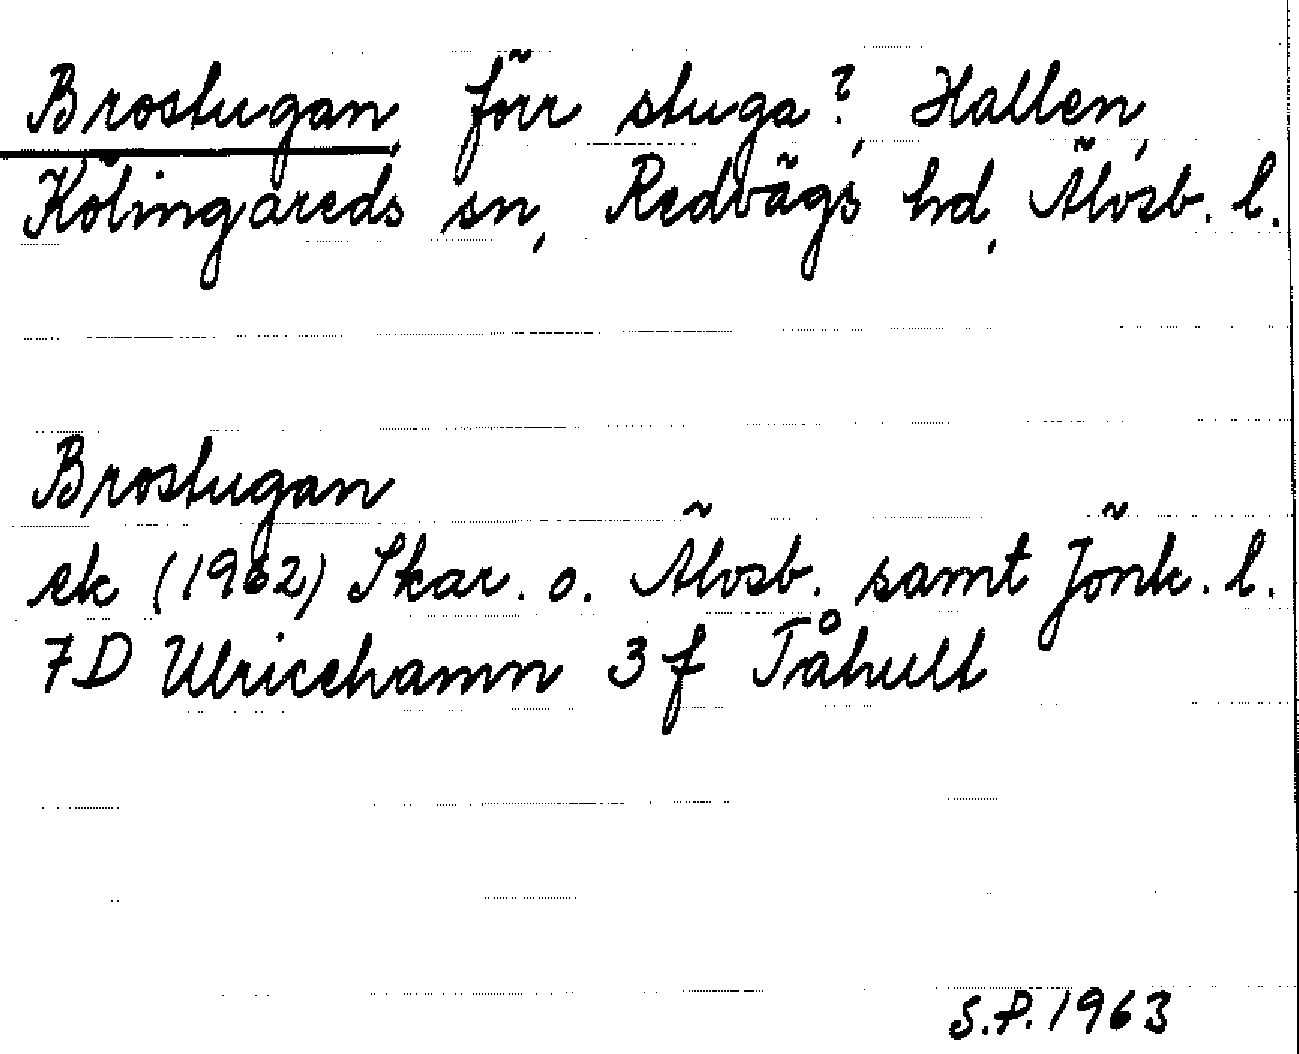 Brostugan, förr stuga?, Hallen,
Kölingareds sn, Redvägs hd, Älvsb. l.
Brostugan
ek (1962) Skar. o. Älvsb. samt Jönk. l.
7D Ulricehamn 3f Tåhult
S.P. 1963